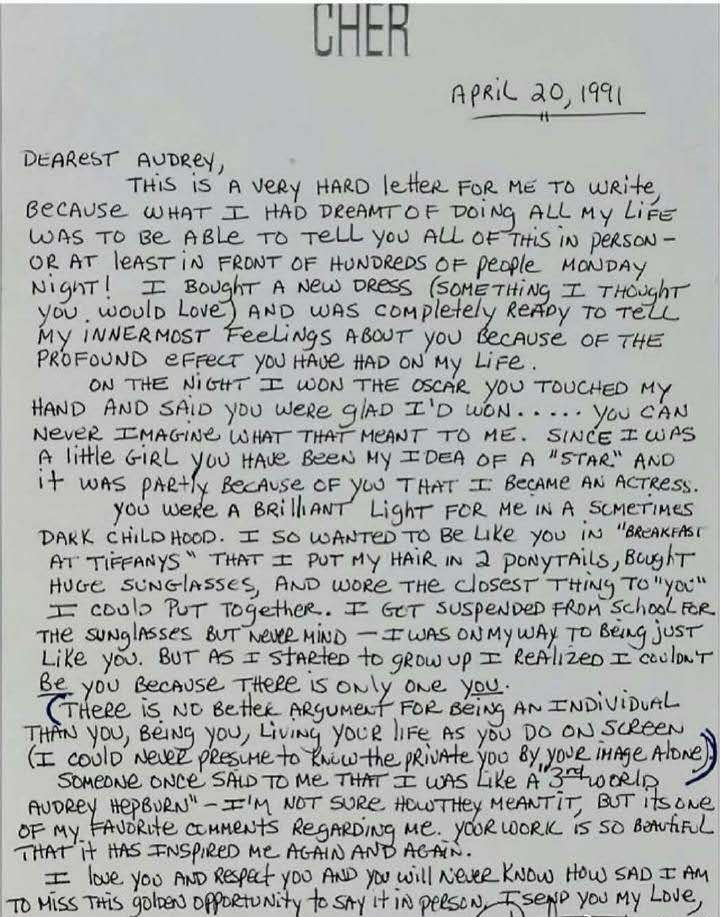 CHER
APRIL 20, 1991
DEAREST AUDREY,
THIS IS A VERY HARD letter FOR ME TO WRITE,
BECAUSE WHAT I HAD DREAMT OF DOING ALL MY LIFE
WAS TO BE ABLE TO TELL YOU ALL OF THIS IN PERSON –
OR AT leAST IN FRONT OF HUNDREDS OF People MONDAY
NIGHT! I BOUGHT A NEW DRESS (SOMETHING I THOUGHT
YOU WOULD LOVE) AND WAS COMPLETELY READY TO TELL
MY INNERMOST FEELINGS ABOUT YOU BECAUSE OF THE
PROFOUND EFFECT YOU HAVE HAD ON MY LIFE.
ON THE NIGHT I WON THE OSCAR YOU TOUCHED MY
HAND AND SAID YOU WERE glAD I'D WON..... YOU CAN
NEVER IMAGINE WHAT THAT MEANT TO ME. SINCE I WAS
A little GIRL YOU HAVE BEEN MY IDEA OF A "STAR" AND
it WAS PARtly BECAUSE OF YOU THAT I BECAME AN ACTRESS.
YOU WERE A BRilliANT Light FOR ME IN A SOMETIMES
DARK CHILDHOOD. I SO WANTED TO BE LIKE YOU IN "BREAKFAST
AT TIFFANYS" THAT I PUT MY HAIR IN 2 PONYTAILS, BOUGHT
HUGE SUNGLASSES, AND WORE THE CLOSEST THING TO "YOU"
I COULD PUT TOGETHER. I GOT SUSPENDED FROM SCHOOL FOR
THE SUNGLASSES BUT NEVER MIND – I WAS ON MY WAY TO BEING JUST
LIKE YOU. BUT AS I STARTED TO GROW UP I REALIZED I COULDN'T
BE YOU BECAUSE THERE IS ONLY ONE YOU.
(THERE IS NO BETTER ARGUMENT FOR BEING AN INDIVIDUAL
THAN YOU, BEING YOU, LIVING YOUR LIFE AS YOU DO ON SCREEN
(I COULD NEVER PRESUME TO KNOW THE PRIVATE YOU BY YOUR IMAGE ALONE))
SOMEONE ONCE SAID TO ME THAT I WAS LIKE A "3rd WORLD
AUDREY HEPBURN" – I'M NOT SURE HOW THEY MEANT IT, BUT ITS ONE
OF MY FAVORITE COMMENTS REGARDING ME. YOUR WORK IS SO BEAUTIFUL
THAT it HAS INSPIRED ME AGAIN AND AGAIN.
I love YOU AND RESPECT YOU AND YOU WILL NEVER KNOW HOW SAD I AM
TO MISS THIS GOLDEN OPPORTUNITY TO SAY IT IN PERSON, I SEND YOU MY LOVE,